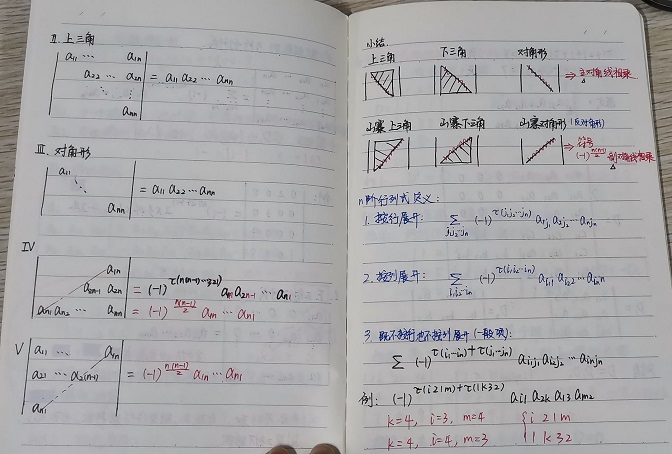 II. 上三角
a₁₁ ⋯ a₁ₙ
a₂₂ ⋯ a₂ₙ = a₁₁ a₂₂ ⋯ aₙₙ
⋱ ⋮
aₙₙ
III. 对角形
a₁₁
⋱ = a₁₁ a₂₂ ⋯ aₙₙ
aₙₙ
IV
a₁ₙ
a₂ₙ₋₁ a₂ₙ = (-1)^τ(n(n-1)⋯321) a₁ₙ a₂ₙ₋₁ ⋯ aₙ₁
aₙ₁ aₙ₂ ⋯ aₙₙ = (-1)^(n(n-1)/2) a₁ₙ ⋯ aₙ₁
V
a₁₁ ⋯ a₁ₙ
a₂₁ ⋯ a₂₍ₙ₋₁₎ = (-1)^(n(n-1)/2) a₁ₙ ⋯ aₙ₁
aₙ₁
小结.
上三角 下三角 对角形
⇒ 主对角线相乘
山寨上三角 山寨下三角 山寨对角形 (反对角形)
⇒ 符号
(-1)^(n(n-1)/2) 副对角线相乘
n阶行列式定义:
1. 按行展开: Σ_(j₁j₂⋯jₙ) (-1)^τ(j₁j₂⋯jₙ) a₁j₁ a₂j₂ ⋯ aₙjₙ
2. 按列展开: Σ_(i₁i₂⋯iₙ) (-1)^τ(i₁i₂⋯iₙ) aᵢ₁1 aᵢ₂2 ⋯ aᵢₙn
3. 既不按行也不按列展开 (一般项):
Σ (-1)^τ(i₁⋯iₙ)+τ(j₁⋯jₙ) aᵢ₁j₁ aᵢ₂j₂ ⋯ aᵢₙjₙ
例: (-1)^τ(i21m)+τ(1k32) aᵢ₁ a₂ₖ a₁₃ aₘ₂
k=4, i=3, m=4 { i 2 1 m
k=4, i=4, m=3 1 k 3 2